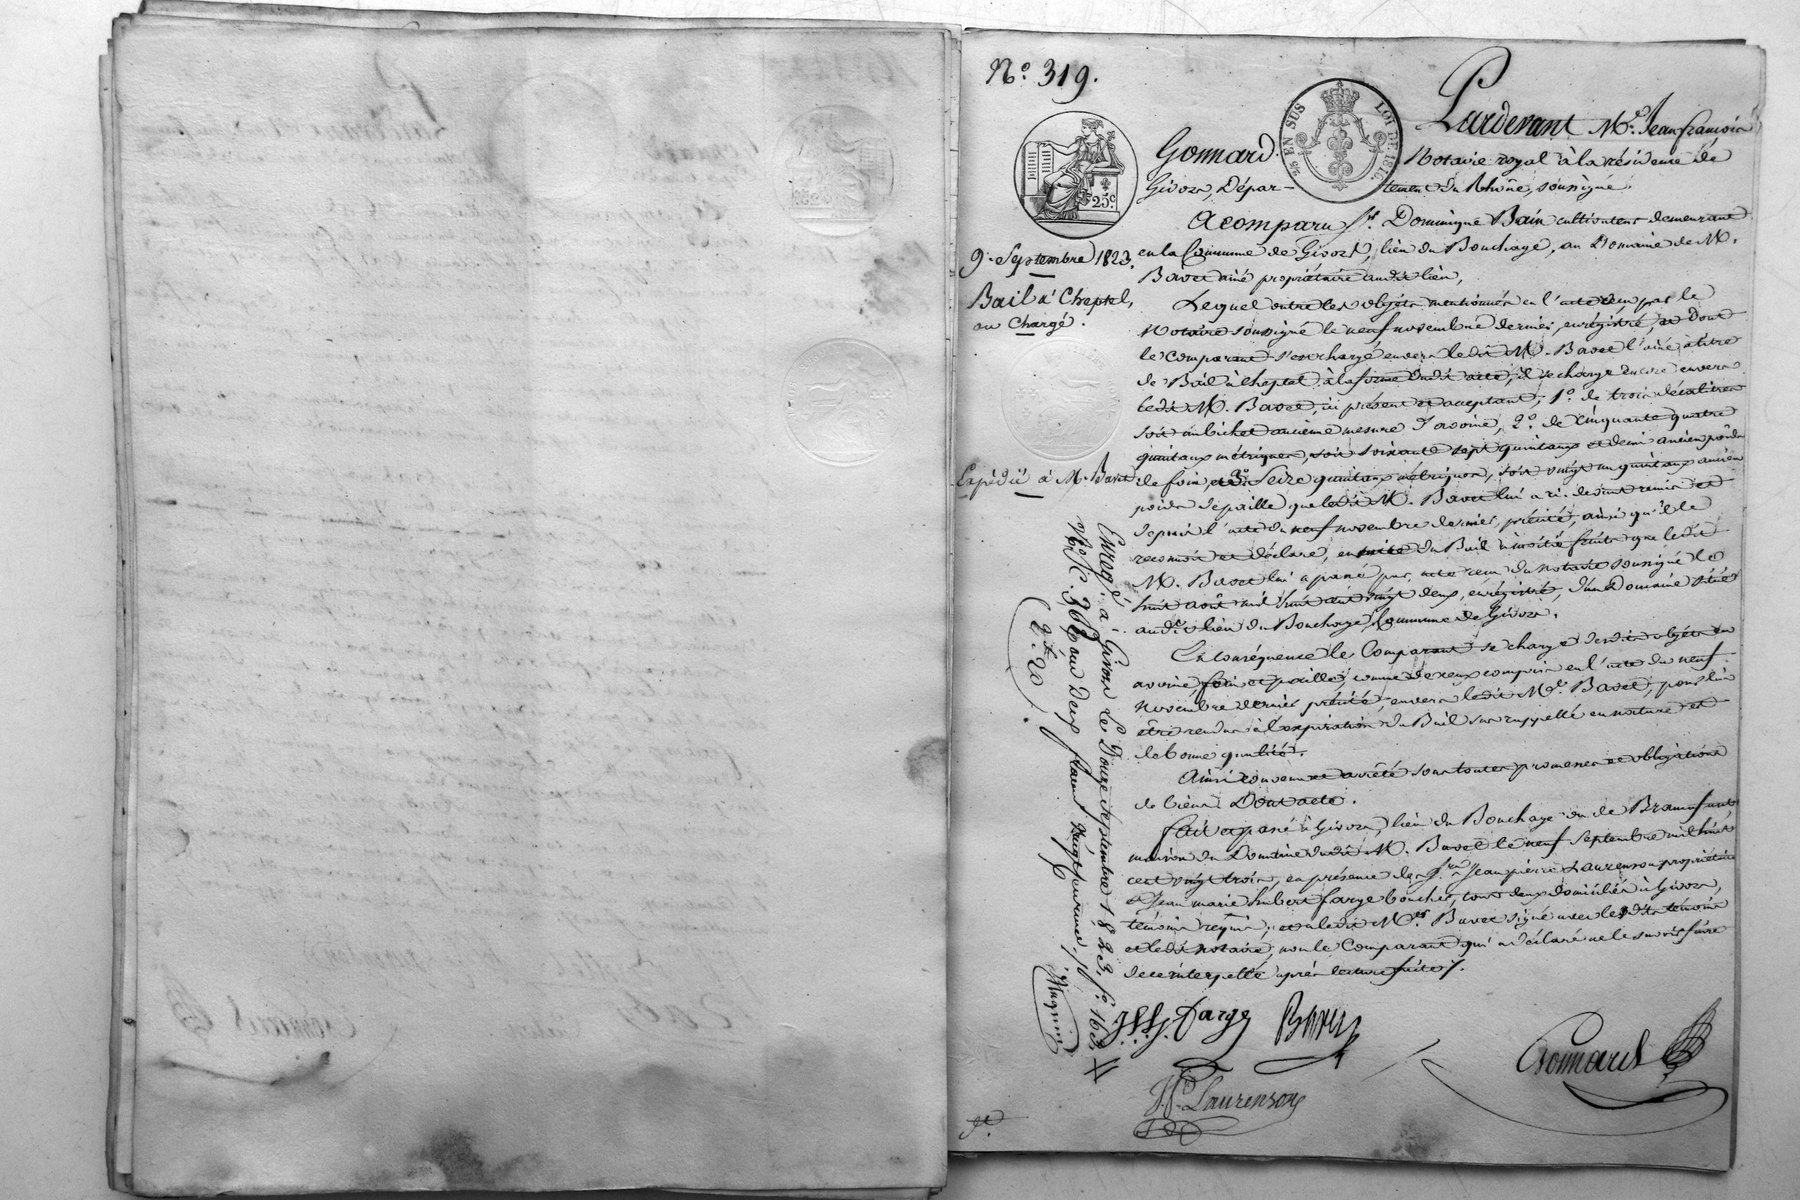 N.º 319.
Pardevant M.e Jean françois
Gonnard. Notaire royal à la résidence de
Givors, Dépar- tement du Rhône, soussigné.
25 EN SUS
LOI DE 1816.
25 c.
9. Septembre 1823.
Bail à Cheptel,
ou Chargé.
Expédié à M. Bavet
A comparu S.r Dominique Bain cultivateur demeurant
en la Commune de Givors, lieu du Bouchage, au Domaine de M.
Bavet ainé propriétaire audit lieu,
Lequel outre les objets mentionnés en l'acte reçu par le
Notaire soussigné le neuf novembre dernier, enrégistré, et dont
le comparant s'est chargé envers ledit M. Bavet l'ainé, a titre
de Bail à cheptel, à la forme dudit acte, il se charge encore envers
ledit M. Bavet, ici présent et acceptant, 1.º de trois décalitres
soit un bichet ancienne mesure d'avoine, 2.º de cinquante quatre
quintaux métriques, soit soixante sept quintaux et demi ancien poids
de foin, et 3.º Seize quintaux métriques, soit vingt un quintaux ancien
poids de paille que ledit M. Bavet lui a ci-devant remis et
depuis l'acte du neuf novembre dernier, précité, ainsi qu'il le
reconnoit et déclare, en suite du Bail à moitié fruits que ledit
M. Bavet lui a passé par acte reçu du notaire soussigné le
huit août mil huit cent vingt deux, enrégistré, d'un Domaine situé
aud.t lieu du Bouchage, Commune de Givors.
En conséquence le Comparant se charge desdits objets en
avoine, foin et paille, comme de ceux compris en l'acte du neuf
novembre dernier précité, envers ledit M.r Bavet, pour lui
être rendus à l'expiration du Bail sus rappellé en nature et
de bonne qualité.
Ainsi convenu et arrêté sous toutes promesses et obligations
de biens Dont acte.
fait et passé à Givors, lieu du Bouchage ou de
maison du Domaine dudit M. Bavet le neuf Septembre mil huit
cent vingt trois, en présence des S.rs Jean pierre Laurenson propriétaire
et Jean marie hubert farge boucher, tous deux domiciliés à Givors,
témoins requis, et ledit M.r Bavet signé avec lesdits témoins
et ledit notaire, non le Comparant qui a déclaré ne le savoir faire
de ce interpellé après lecture faite.
Enreg.é à Givors le Douze septembre 1823, f.º 163
V.º C. 3. Reçu deux francs vingt centimes,
(2.f 20)
farge Bavet
Gonnard
J.P. Laurenson